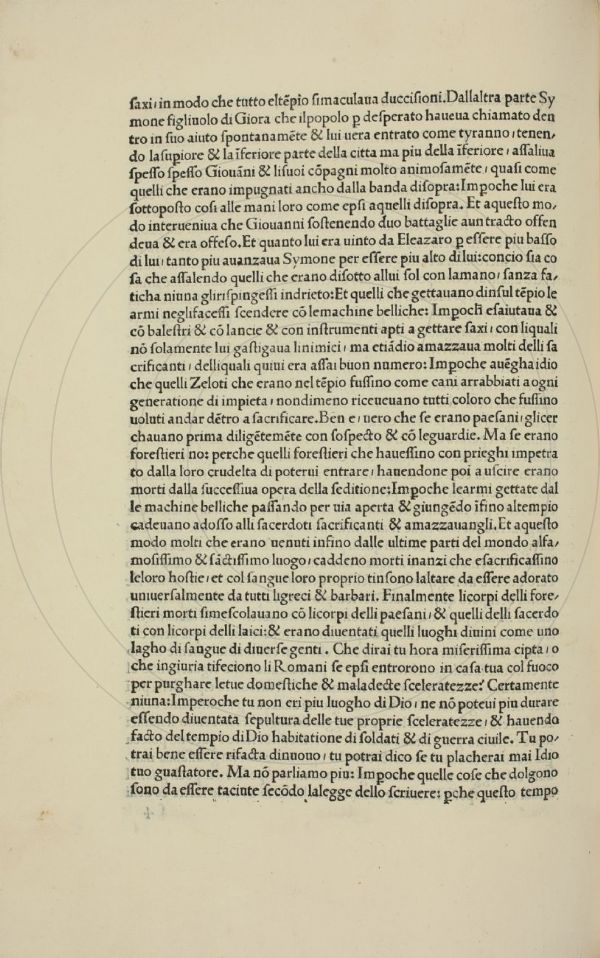 ſaxi, in modo che tutto eltẽpio ſimaculaua duccisioni. Dallaltra parte Sy
mone figliuolo di Giora che ilpopolo ꝑ deſperato haueua chiamato den
tro in ſuo aiuto ſpontanamẽte & lui uera entrato come tyranno, tenen/
do laſupiore & la ĩferiore parte della citta ma piu della ĩferiore, aſſaliua
ſpeſſo ſpeſſo Giouãni & liſuoi cõpagni molto animoſamẽte, quaſi come
quelli che erano impugnati ancho dalla banda diſopra: Impoche lui era
ſottopoſto coſi alle mani loro come epſi aquelli diſopra. Et aqueſto mo/
do interueniua che Giouanni ſoſtenendo duo battaglie aun tracto offen
deua & era offeſo. Et quanto lui era uinto da Eleazaro ꝑ eſſere piu baſſo
di lui, tanto piu auanzaua Symone per eſſere piu alto di lui: concio ſia co
ſa che aſſalendo quelli che erano diſotto allui ſol con lamano, ſanza fa/
ticha niuna gliriſpingeſſi indrieto: Et quelli che gettauano dinſul tẽpio le
armi negliſaceſſi ſcendere cõ lemachine belliche: Impoch̃ eſaiutaua &
cõ baleſtri & cõ lancie & con inſtrumenti apti a gettare ſaxi, con liquali
nõ ſolamente lui gaſtigaua linimici, ma etiãdio amazzaua molti delli ſa
crificanti, delliquali quiui era aſſai buon numero: Impoche auẽgha idio
che quelli Zeloti che erano nel tẽpio fuſſino come cani arrabbiati a ogni
generatione di impieta, nondimeno riceueuano tutti coloro che fuſſino
uoluti andar dẽtro a ſacrificare. Ben e, uero che ſe erano paeſani, glicer
chauano prima diligẽtemẽte con ſoſpecto & cõ leguardie. Ma ſe erano
foreſtieri no: perche quelli foreſtieri che haueſſino con prieghi impetra
to dalla loro crudelta di poterui entrare, hauendone poi a uſcire erano
morti dalla ſucceſſiua opera della ſeditione: Impoche learmi gettate dal
le machine belliche paſſando per uia aperta & giungẽdo ĩfino altempio
cadeuano adoſſo alli ſacerdoti ſacrificanti & amazzauangli. Et aqueſto
modo molti che erano uenuti infino dalle ultime parti del mondo alfa/
moſiſſimo & ſãctiſſimo luogo, caddeno morti inanzi che eſacrificaſſino
leloro hoſtie, et col ſangue loro proprio tinſono laltare da eſſere adorato
uniuerſalmente da tutti ligreci & barbari. Finalmente licorpi delli fore/
ſtieri morti ſimeſcolauano cõ licorpi delli paeſani, & quelli delli ſacerdo
ti con licorpi delli laici: & erano diuentati quelli luoghi diuini come uno
lagho di ſangue di diuerſe genti. Che dirai tu hora miſeriſſima cipta, o
che ingiuria tifeciono li Romani ſe epſi entrorono in caſa tua col fuoco
per purghare letue domeſtiche & maladecte ſceleratezze? Certamente
niuna: Imperoche tu non eri piu luogho di Dio, ne nõ poteui piu durare
eſſendo diuentata ſepultura delle tue proprie ſceleratezze, & hauendo
facto del tempio di Dio habitatione di ſoldati & di guerra ciuile. Tu po/
trai bene eſſere rifacta dinuouo, tu potrai dico ſe tu placherai mai Idio
tuo guaſtatore. Ma nõ parliamo piu: Impoche quelle coſe che dolgono
ſono da eſſere taciute ſecõdo lalegge dello ſcriuere: ꝑche queſto tempo